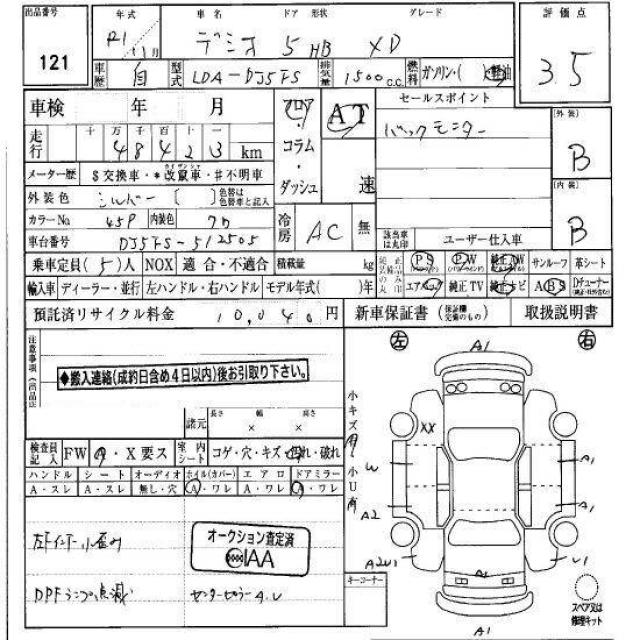 出品番号 年式 車名 ドア 形状 グレード 評価点
121 R1 11月 デミオ 5 HB XD 3.5
車歴 自 型式 LDA-DJ5FS 排気量 1500 c.c. 燃料 ガソリン・( )軽油
車検 年 月 フロア・コラム・ダッシュ AT 速 セールスポイント
走行 十 万 千 百 十 一 バックモニター 外装 B
48423 km
メーター歴 $交換車・*改竄車・#不明車 内装 B
外装色 シルバー ( ) 色替は色替車と記入
カラーNo 45P 内装色 クロ 冷房 AC 無 該当車は丸印 ユーザー仕入車
車台番号 DJ5FS-512505
乗車定員(5)人 NOX 適合・不適合 積載量 kg PS PW 純正AW サンルーフ 革シート
輸入車 ディーラー・並行 左ハンドル・右ハンドル モデル年式( )年 エアB 純正TV 純正ナビ ABS Dチューナー
預託済リサイクル料金 10,040円 新車保証書 取扱説明書
注意事項 左 A1 右
◆搬入連絡(成約日含め4日以内)後お引取り下さい。
小キズ有 XX
諸元 長さ × 幅 × 高さ
検査員記入 FW A・X要ス 室内シート コゲ・穴・キズ・切れ・破れ W A1
ハンドル シート オーディオ ホイル(カバー) エアロ ドアミラー 小U有
A・スレ A・スレ 無し・穴 A・ワレ A・ワレ A・ワレ A2 A1
左Fインナー小歪み オークション査定済
IAA A2U1 A1 U1
DPFランプ点滅 センターピラーA.U キーコーナー スペア又は修理キット
A1